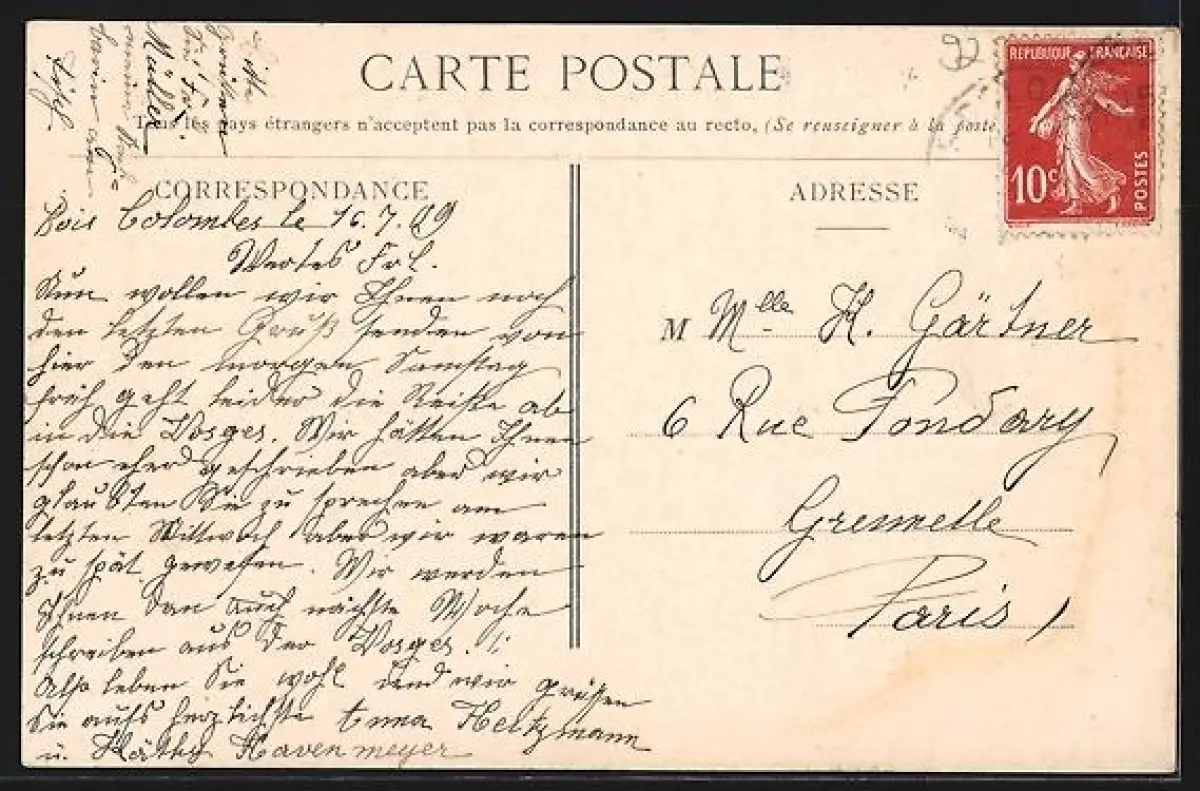 CARTE POSTALE
Tous les pays étrangers n'acceptent pas la correspondance au recto, (Se renseigner à la poste
CORRESPONDANCE
Bois Colombes le 16. 7. 09
Wertes Frl.
Nun wollen wir Ihnen noch
den letzten Gruß senden von
hier den morgen Samstag
früh geht leider die Reise ab
in die Vosges. Wir hätten Ihnen
schon geschrieben aber wir
glaubten Sie zu sprechen am
letzten Mittwoch aber wir waren
zu spät gewesen. Wir werden
Ihnen dan auch nächste Woche
schreiben aus der Vosges.
Also leben Sie wohl und wir grüssen
Sie aufs herzlichste Anna Heitzmann
u. Käthy Havenmeyer
Bitte
Frl.
Müller
ADRESSE
M Mlle H. Gärtner
6 Rue Fondary
Grennelle
Paris
REPUBLIQUE FRANÇAISE
10 c
POSTES